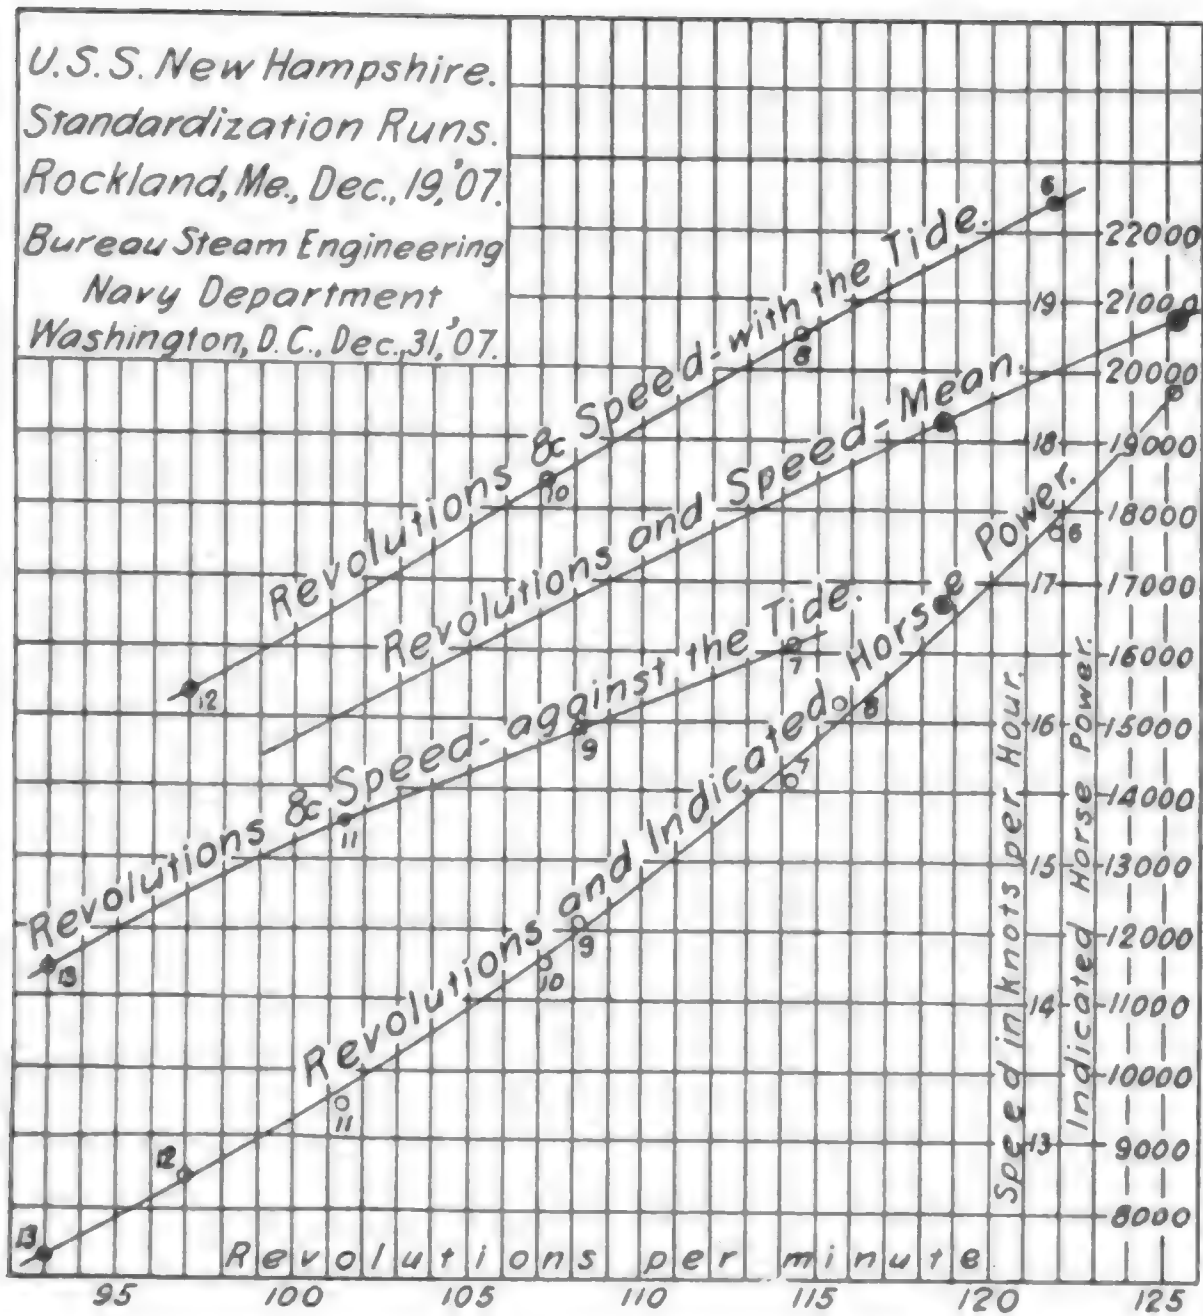 U.S.S. New Hampshire.
Standardization Runs.
Rockland, Me., Dec., 19,'07.
Bureau Steam Engineering
Navy Department
Washington, D.C., Dec., 31,'07.
Revolutions & Speed-with the Tide.
12
10
8
6
Revolutions and Speed-Mean.
Revolutions & Speed-against the Tide.
13
11
9
7
Revolutions and Indicated Horse Power.
13
12
11
10
9
7
8
6
Speed in knots per Hour.
19
18
17
16
15
14
13
Indicated Horse Power.
22000
21000
20000
19000
18000
17000
16000
15000
14000
13000
12000
11000
10000
9000
8000
Revolutions per minute
95 100 105 110 115 120 125